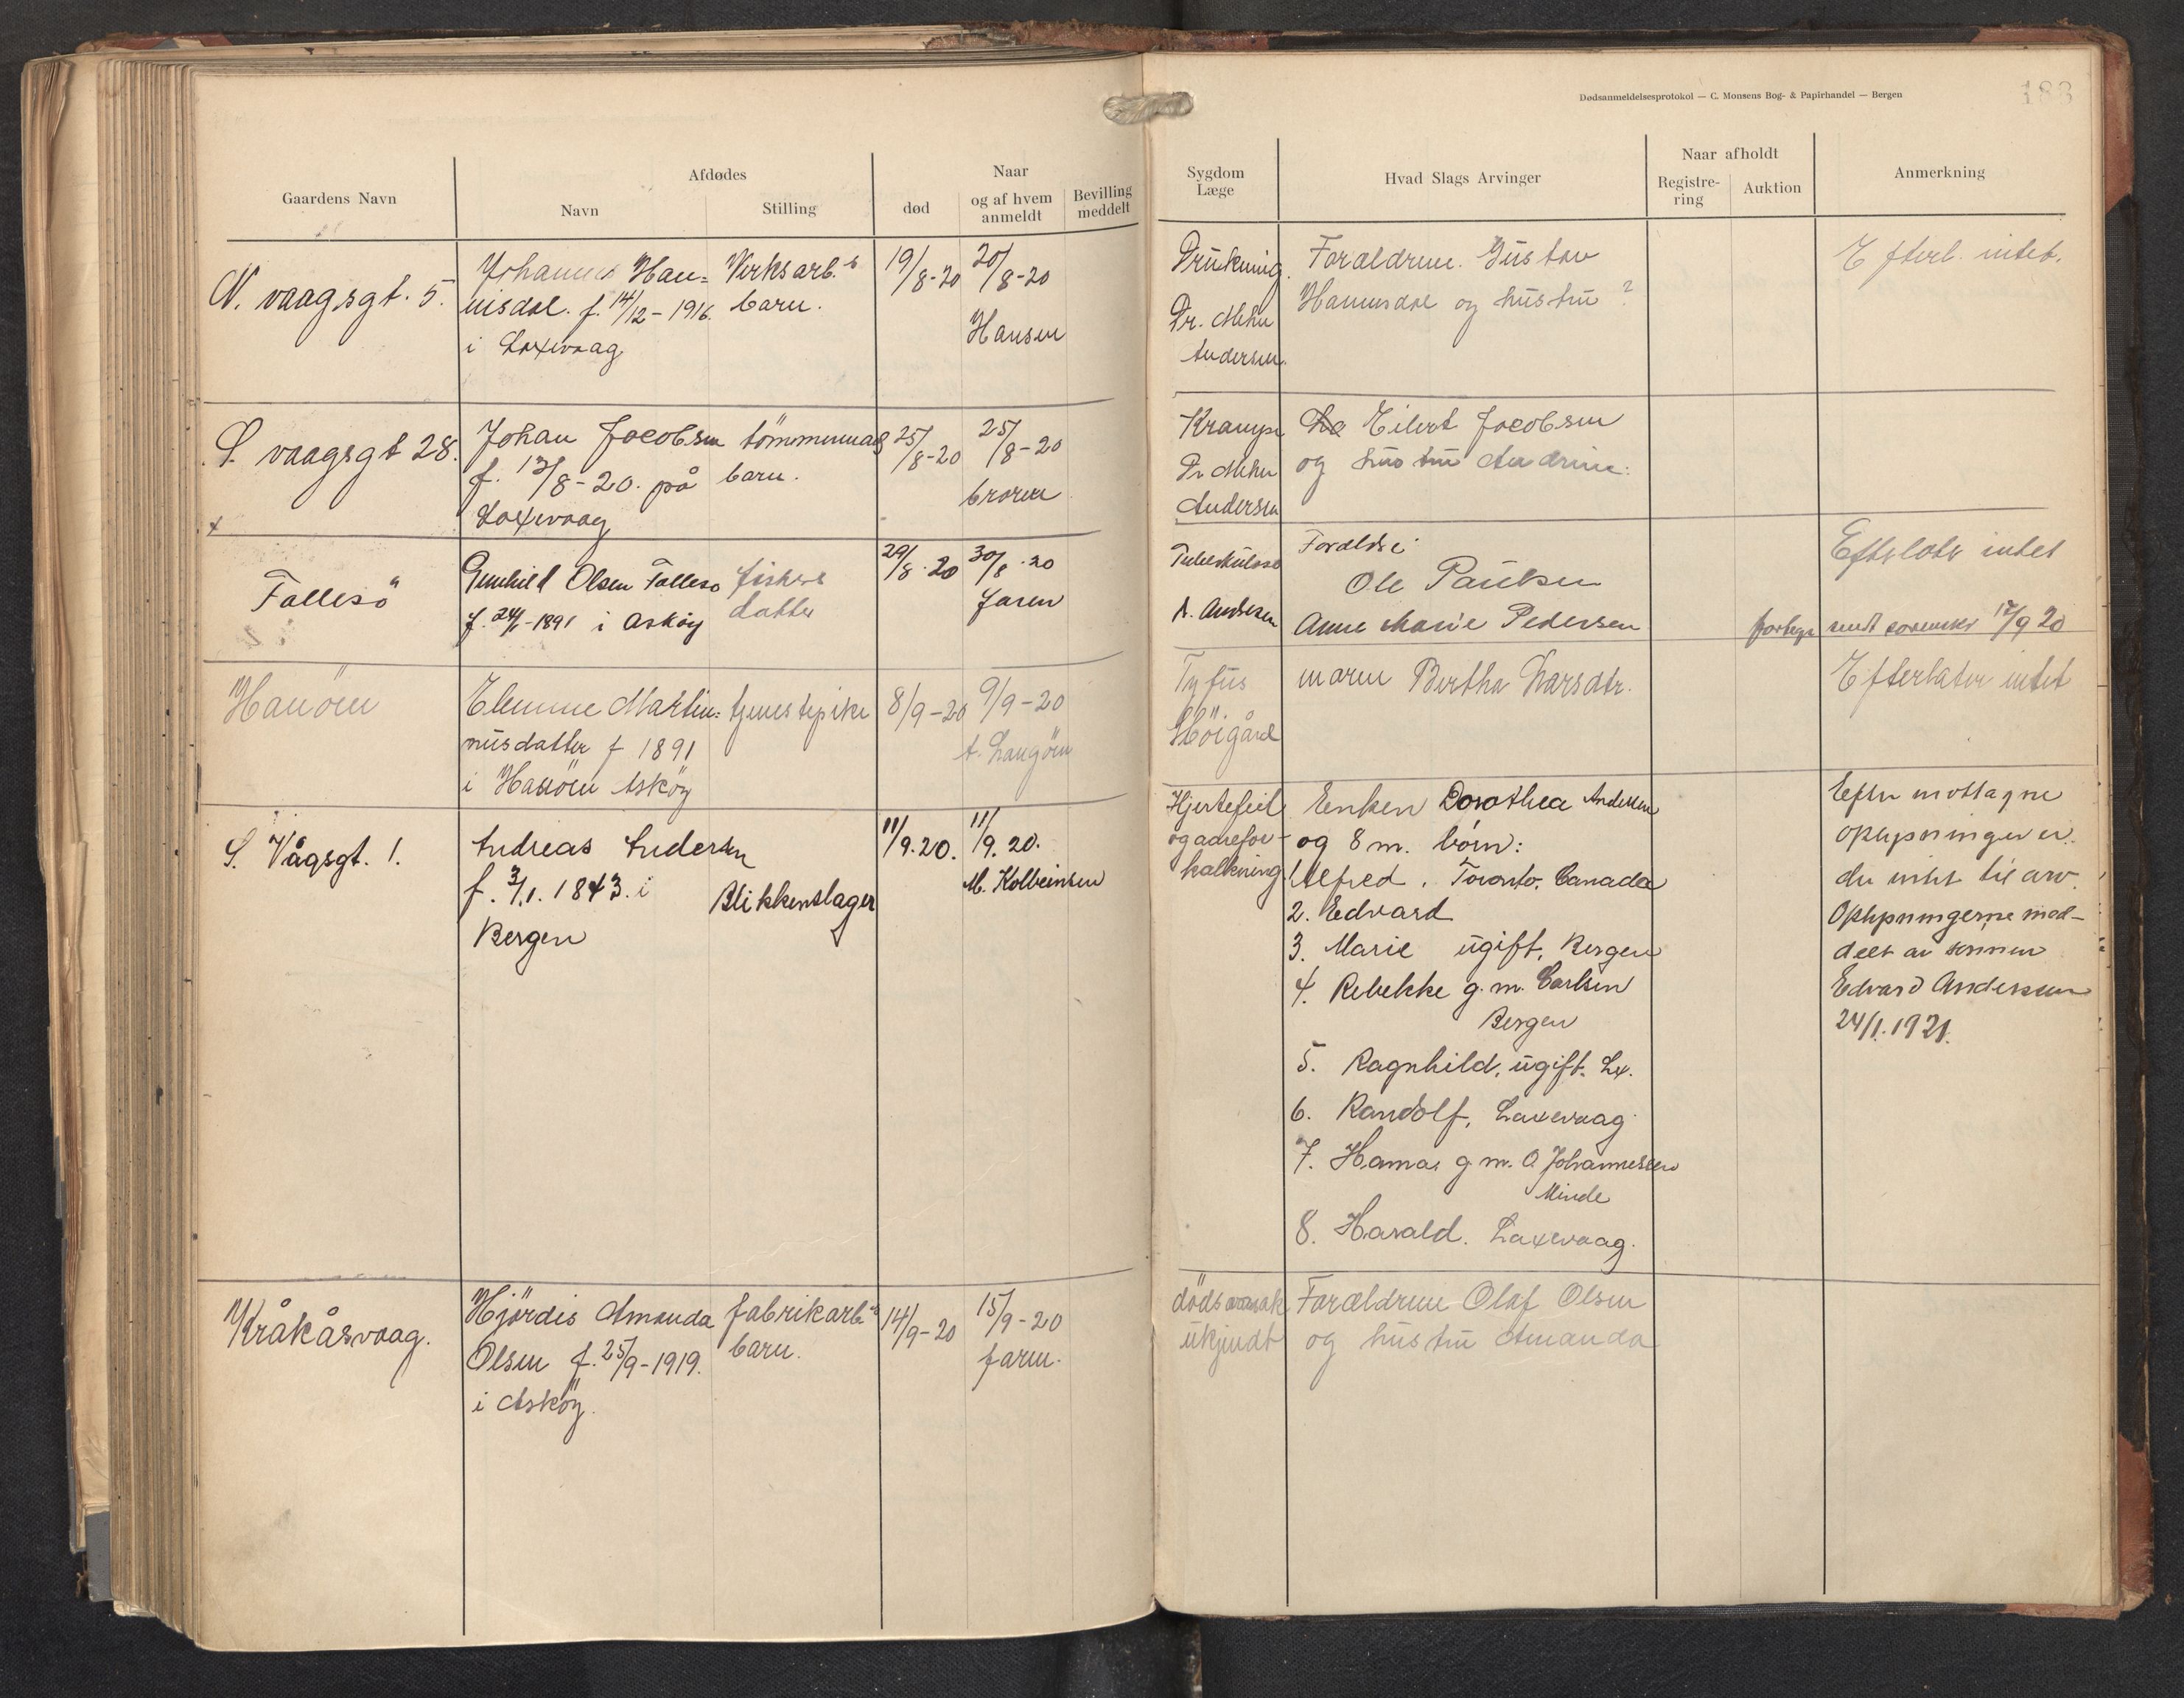 Dødsanmeldelsesprotokol — C. Monsens Bog- & Papirhandel — Bergen
183
Gaardens Navn
Afdødes
Navn
Stilling
Naar
død
og af hvem anmeldt
Bevilling meddelt
Sygdom
Læge
Hvad Slags Arvinger
Naar afholdt
Registre-
ring
Auktion
Anmerkning
N. vaagsgt. 5.
Johannes Han=
nisdal. f. 14/12 - 1916.
i Laxevaag
Verksarb.s
barn.
19/8-20
20/8-20
Hansen
Drukning.
Dr. Mohn
Andersen.
Forældrene. Gustav
Hannisdal og hustru ?
Efterl. intet.
S. vaagsgt 28.
Johan Jacobsen
f. 13/8-20. på
Laxevaag
tömmermads
barn.
25/8-20
25/8-20
broren
Krampe
Dr Mohn
Andersen
Eilert Jacobsen
og hustru Andrine.
x
Follesö
Gunhild Olsen Follesø
f. 24/1-1891 i Askøy
fisker
datter
29/8.20
30/8.20
faren
Tuberkulose
A. Andersen
Forældre:
Ole Paulsen
Anne Marie Pedersen
Efterlots intet
17/9 20
Hanöen
Elemine Martin=
nusdatter f 1891
i Hanöen Askøy
tjenestepike
8/9-20
9/9-20
A. Langöen
Tyfus
Höigård
moren Bertha Larsdtr.
Efterlater intet
S. Vågsgt. 1.
Andreas Andersen
f. 3/1. 1843. i
Bergen
Blikkenslager
11/9.20.
11/9.20.
M. Kolbeinsen
Hjertefeil
og aarefor-
kalkning
Enken Dorothea Andersen
og 8 m. börn:
1. Alfred. Toronto, Canada
2. Edvard
3. Marie ugift, Bergen
4. Rebekke g.m. Carlsen
Bergen
5. Ragnhild, ugift. Lx.
6. Randolf, Laxevaag
7. Hanna g.m. O. Johannessen
Minde
8. Harald. Laxevaag.
Efter mottagne
oplysninger er
der intet til arv.
Oplysningerne med-
delt av sønnen
Edvard Andersen
24/1.1921.
Kråkåsvaag.
Hjördis Amanda
Olsen f. 25/9-1919.
i Askøy.
fabrikarb.s
barn.
14/9-20
15/9-20
faren.
dödsaarsak
ukjendt
Forældrene Olaf Olsen
og hustru Amanda